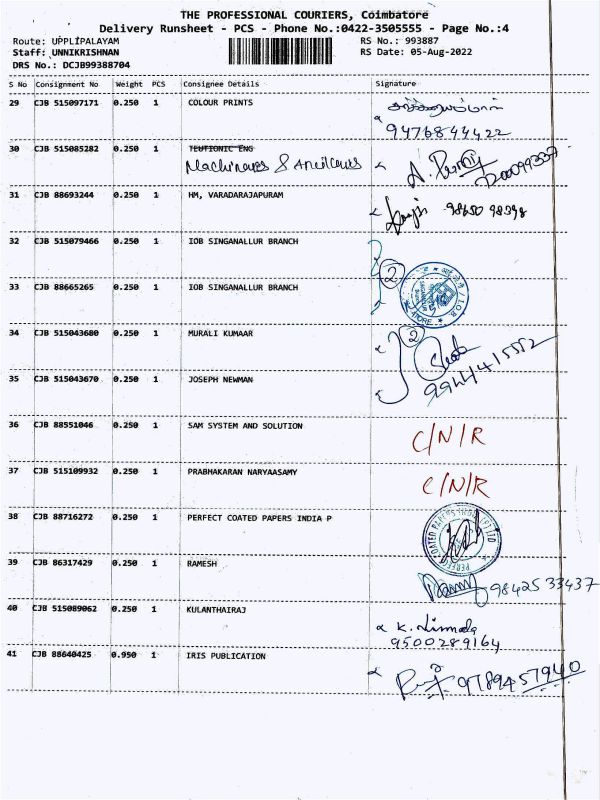 THE PROFESSIONAL COURIERS, Coimbatore
Delivery Runsheet - PCS - Phone No.:0422-3505555 - Page No.:4
Route: UPPLIPALAYAM RS No.: 993887
Staff: UNNIKRISHNAN RS Date: 05-Aug-2022
DRS No.: DCJB99388704
S No Consignment No Weight PCS Consignee Details Signature
29 CJB 515097171 0.250 1 COLOUR PRINTS
9476844422
30 CJB 515085282 0.250 1 TEUTIONIC ENG
31 CJB 88693244 0.250 1 HM, VARADARAJAPURAM 98650 98398
32 CJB 515079466 0.250 1 IOB SINGANALLUR BRANCH
2
33 CJB 88665265 0.250 1 IOB SINGANALLUR BRANCH
34 CJB 515043680 0.250 1 MURALI KUMAAR 2
9944415552
35 CJB 515043670 0.250 1 JOSEPH NEWMAN
36 CJB 88551046 0.250 1 SAM SYSTEM AND SOLUTION C/N/R
37 CJB 515109932 0.250 1 PRABHAKARAN NARYAASAMY C/N/R
38 CJB 88716272 0.250 1 PERFECT COATED PAPERS INDIA P
39 CJB 86317429 0.250 1 RAMESH 9842533437
40 CJB 515089062 0.250 1 KULANTHAIRAJ K. Nirmala
9500289164
41 CJB 88640425 0.950 1 IRIS PUBLICATION 9789457940